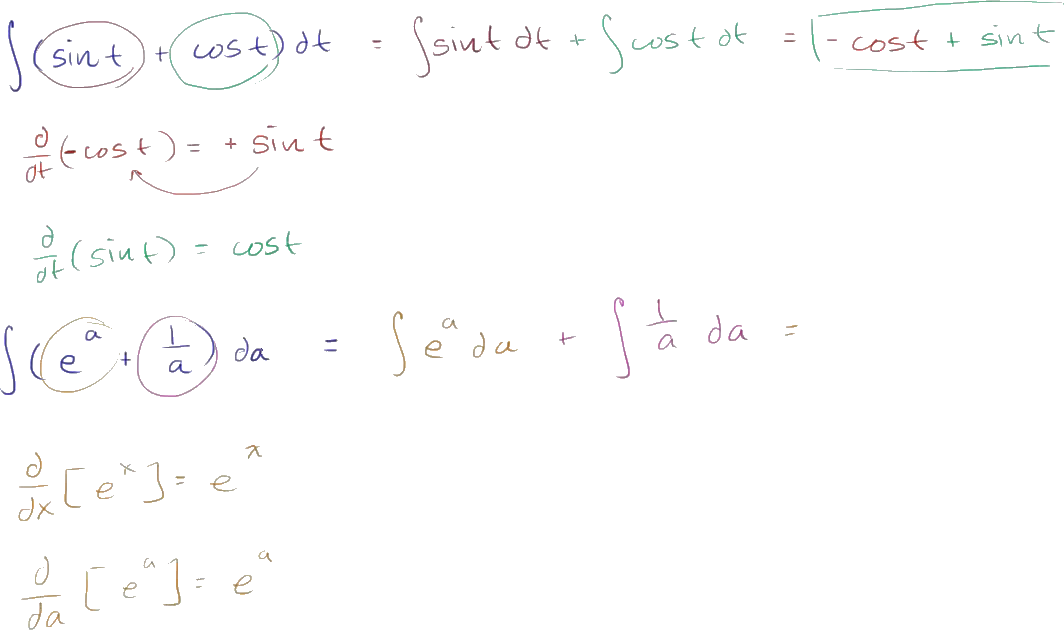 ∫(sin t + cos t) dt = ∫sin t dt + ∫cos t dt = - cos t + sin t
d/dt (-cos t) = + sin t
d/dt (sin t) = cos t
∫(e^a + 1/a) da = ∫e^a da + ∫1/a da =
d/dx [e^x] = e^x
d/da [e^a] = e^a